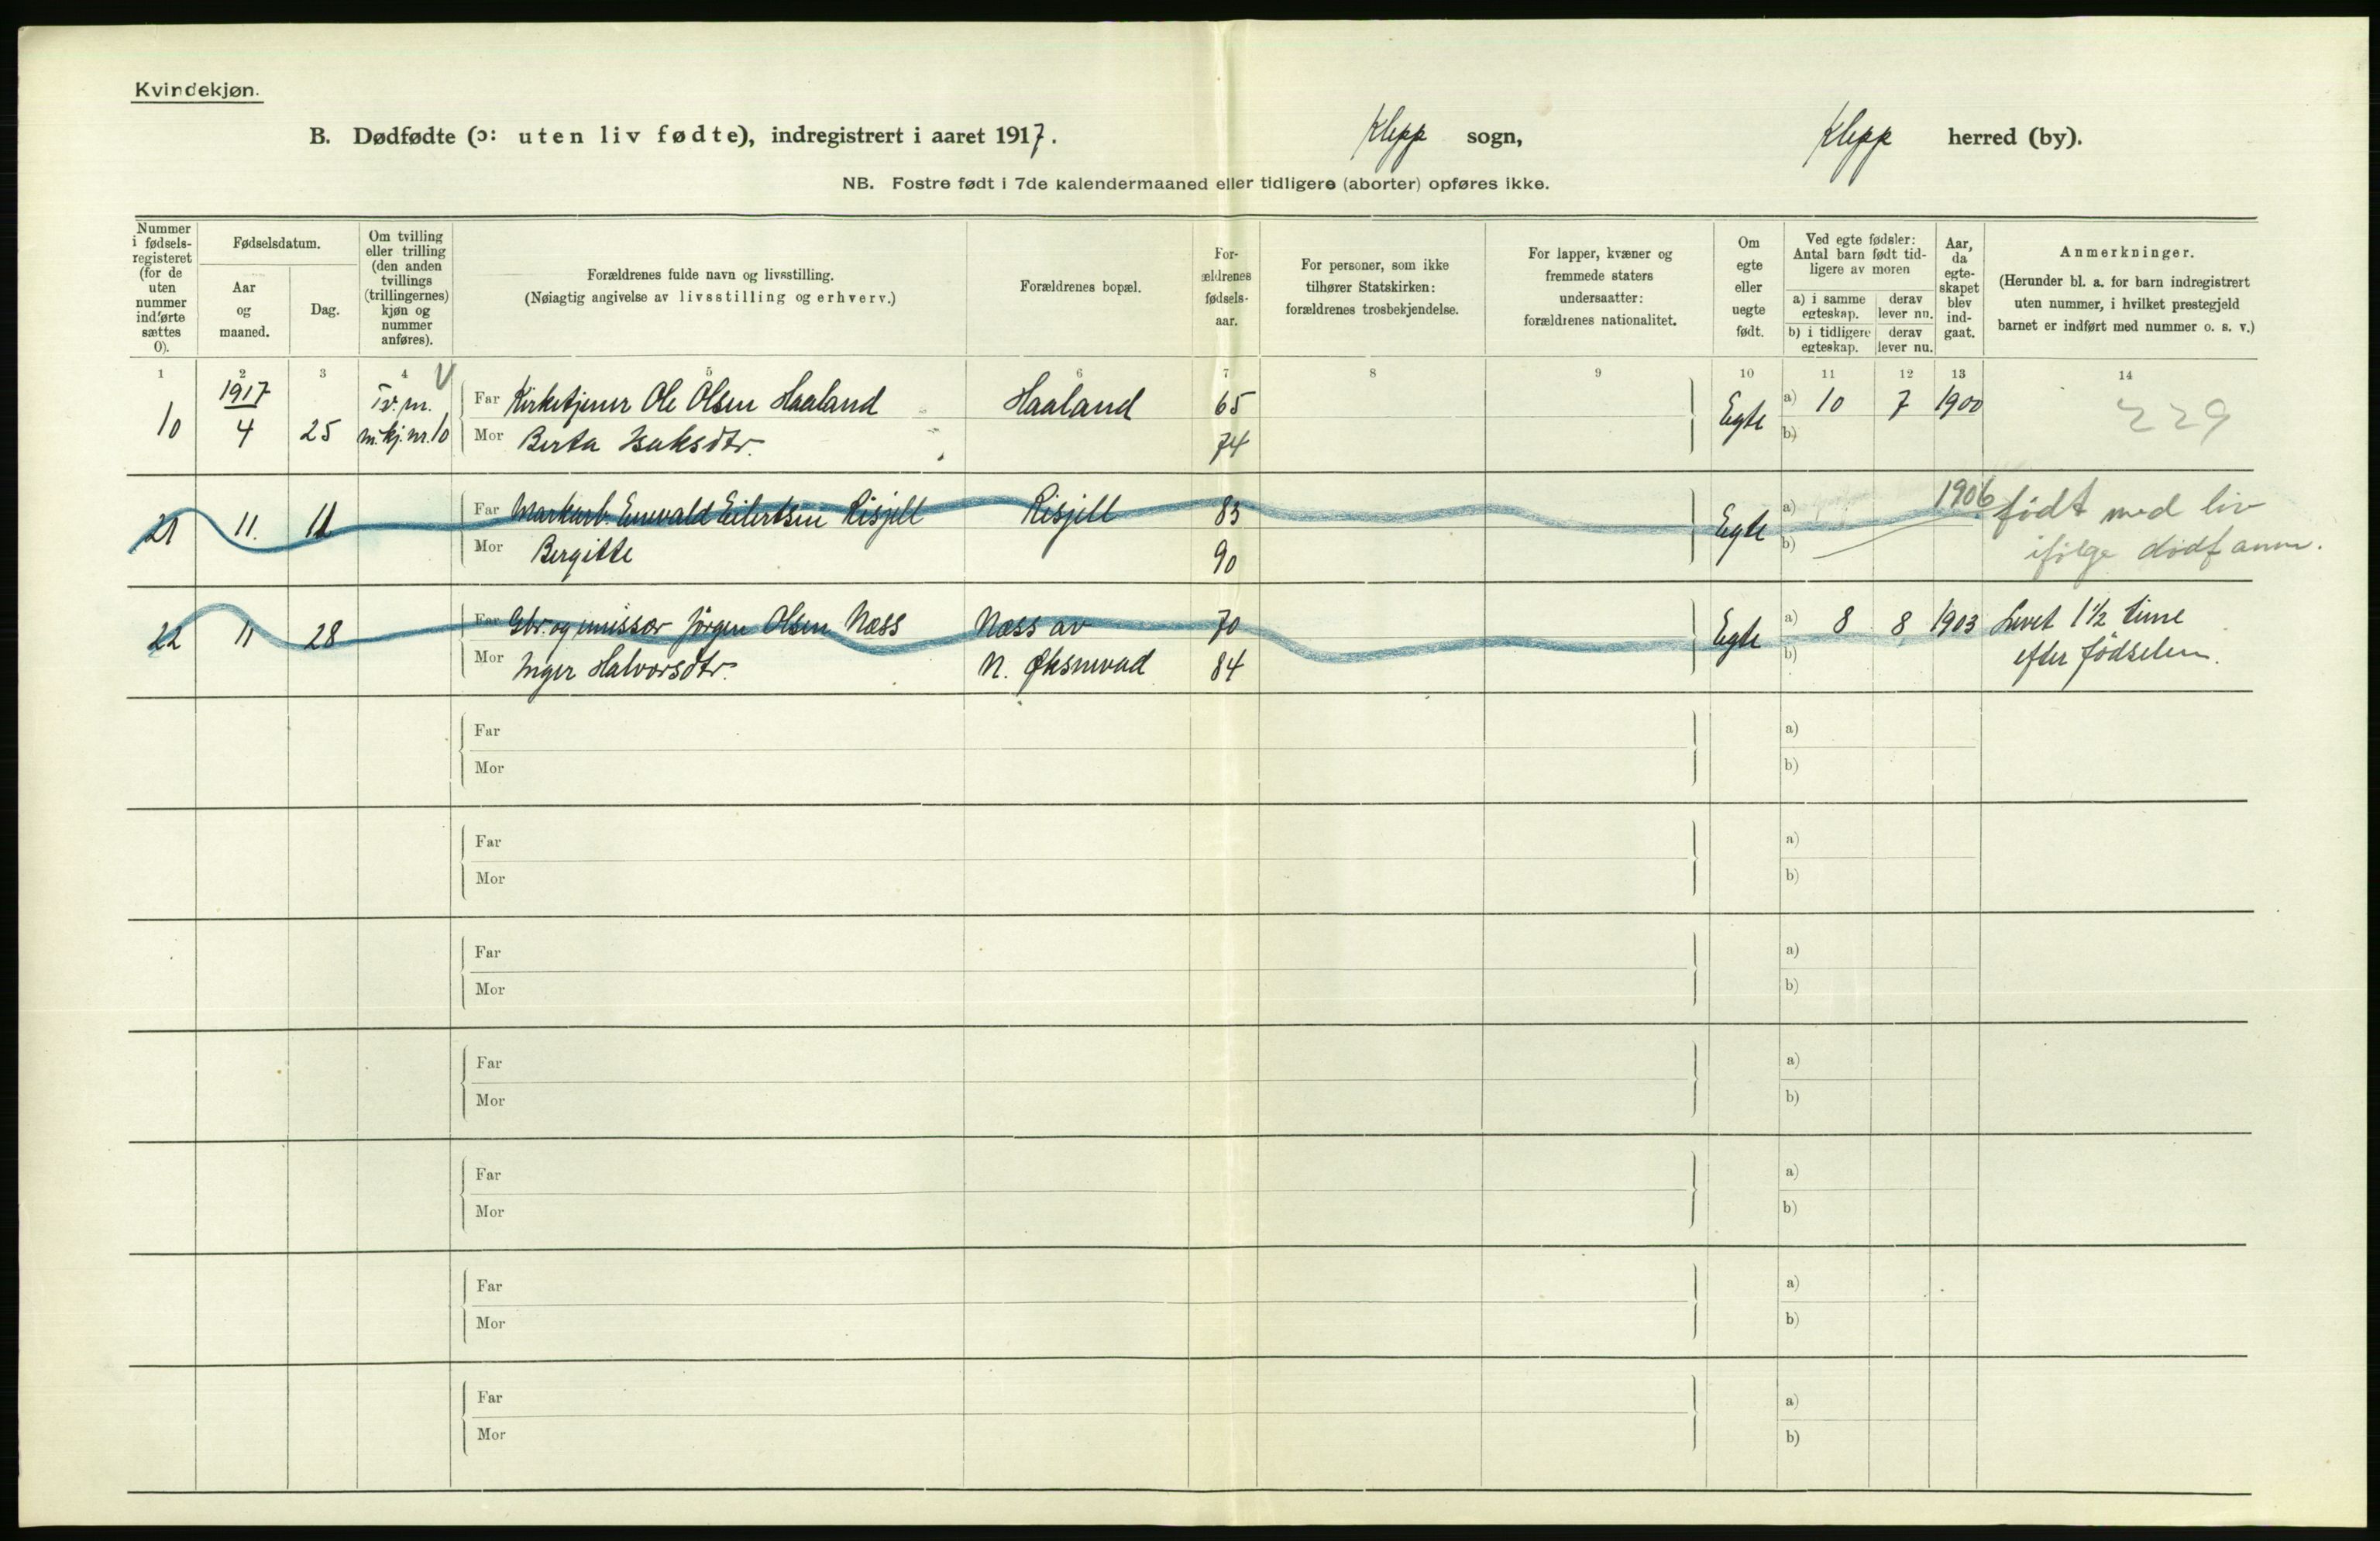 Kvindekjøn.
B. Dødfødte (ɔ: uten liv fødte), indregistrert i aaret 1917. Klepp sogn, Klepp herred (by).
NB. Fostre født i 7de kalendermaaned eller tidligere (aborter) opføres ikke.
Nummer i fødsels-registeret (for de uten nummer indførte sættes 0).
Fødselsdatum.
Aar og maaned.
Dag.
Om tvilling eller trilling (den anden tvillings (trillingernes) kjøn og nummer anføres).
Forældrenes fulde navn og livsstilling.
(Nøiagtig angivelse av livsstilling og erhverv.)
Forældrenes bopæl.
For-ældrenes fødsels-aar.
For personer, som ikke tilhører Statskirken: forældrenes trosbekjendelse.
For lapper, kvæner og fremmede staters undersaatter: forældrenes nationalitet.
Om egte eller uegte født.
Ved egte fødsler: Antal barn født tid-ligere av moren
a) i samme egteskap. derav lever nu.
b) i tidligere egteskap. derav lever nu.
Aar, da egte-skapet blev ind-gaat.
Anmerkninger.
(Herunder bl. a. for barn indregistrert uten nummer, i hvilket prestegjeld barnet er indført med nummer o. s. v.)
1 2 3 4 5 6 7 8 9 10 11 12 13 14
10 1917 4 25 Tv. m. m.kj. nr. 10 Far Kirketjener Ole Olsen Haaland Haaland 65 Egte a) 10 7 1900 229
Mor Berta Isaksdtr. 74 b)
21 11. 11 Far Markarb. Enevald Eilertsen Risjell Risjell 83 Egte a) 1906 født med liv
Mor Bergitte 90 b) ifølge dødfanm.
22 11 28 Far Gbr. og emissær Jörgen Olsen Næss Næss av 70 Egte a) 8 8 1903 Levet 1½ time
Mor Inger Halvorsdtr. N. Øksnevad 84 b) efter fødselen.
Far a)
Mor b)
Far a)
Mor b)
Far a)
Mor b)
Far a)
Mor b)
Far a)
Mor b)
Far a)
Mor b)
Far a)
Mor b)